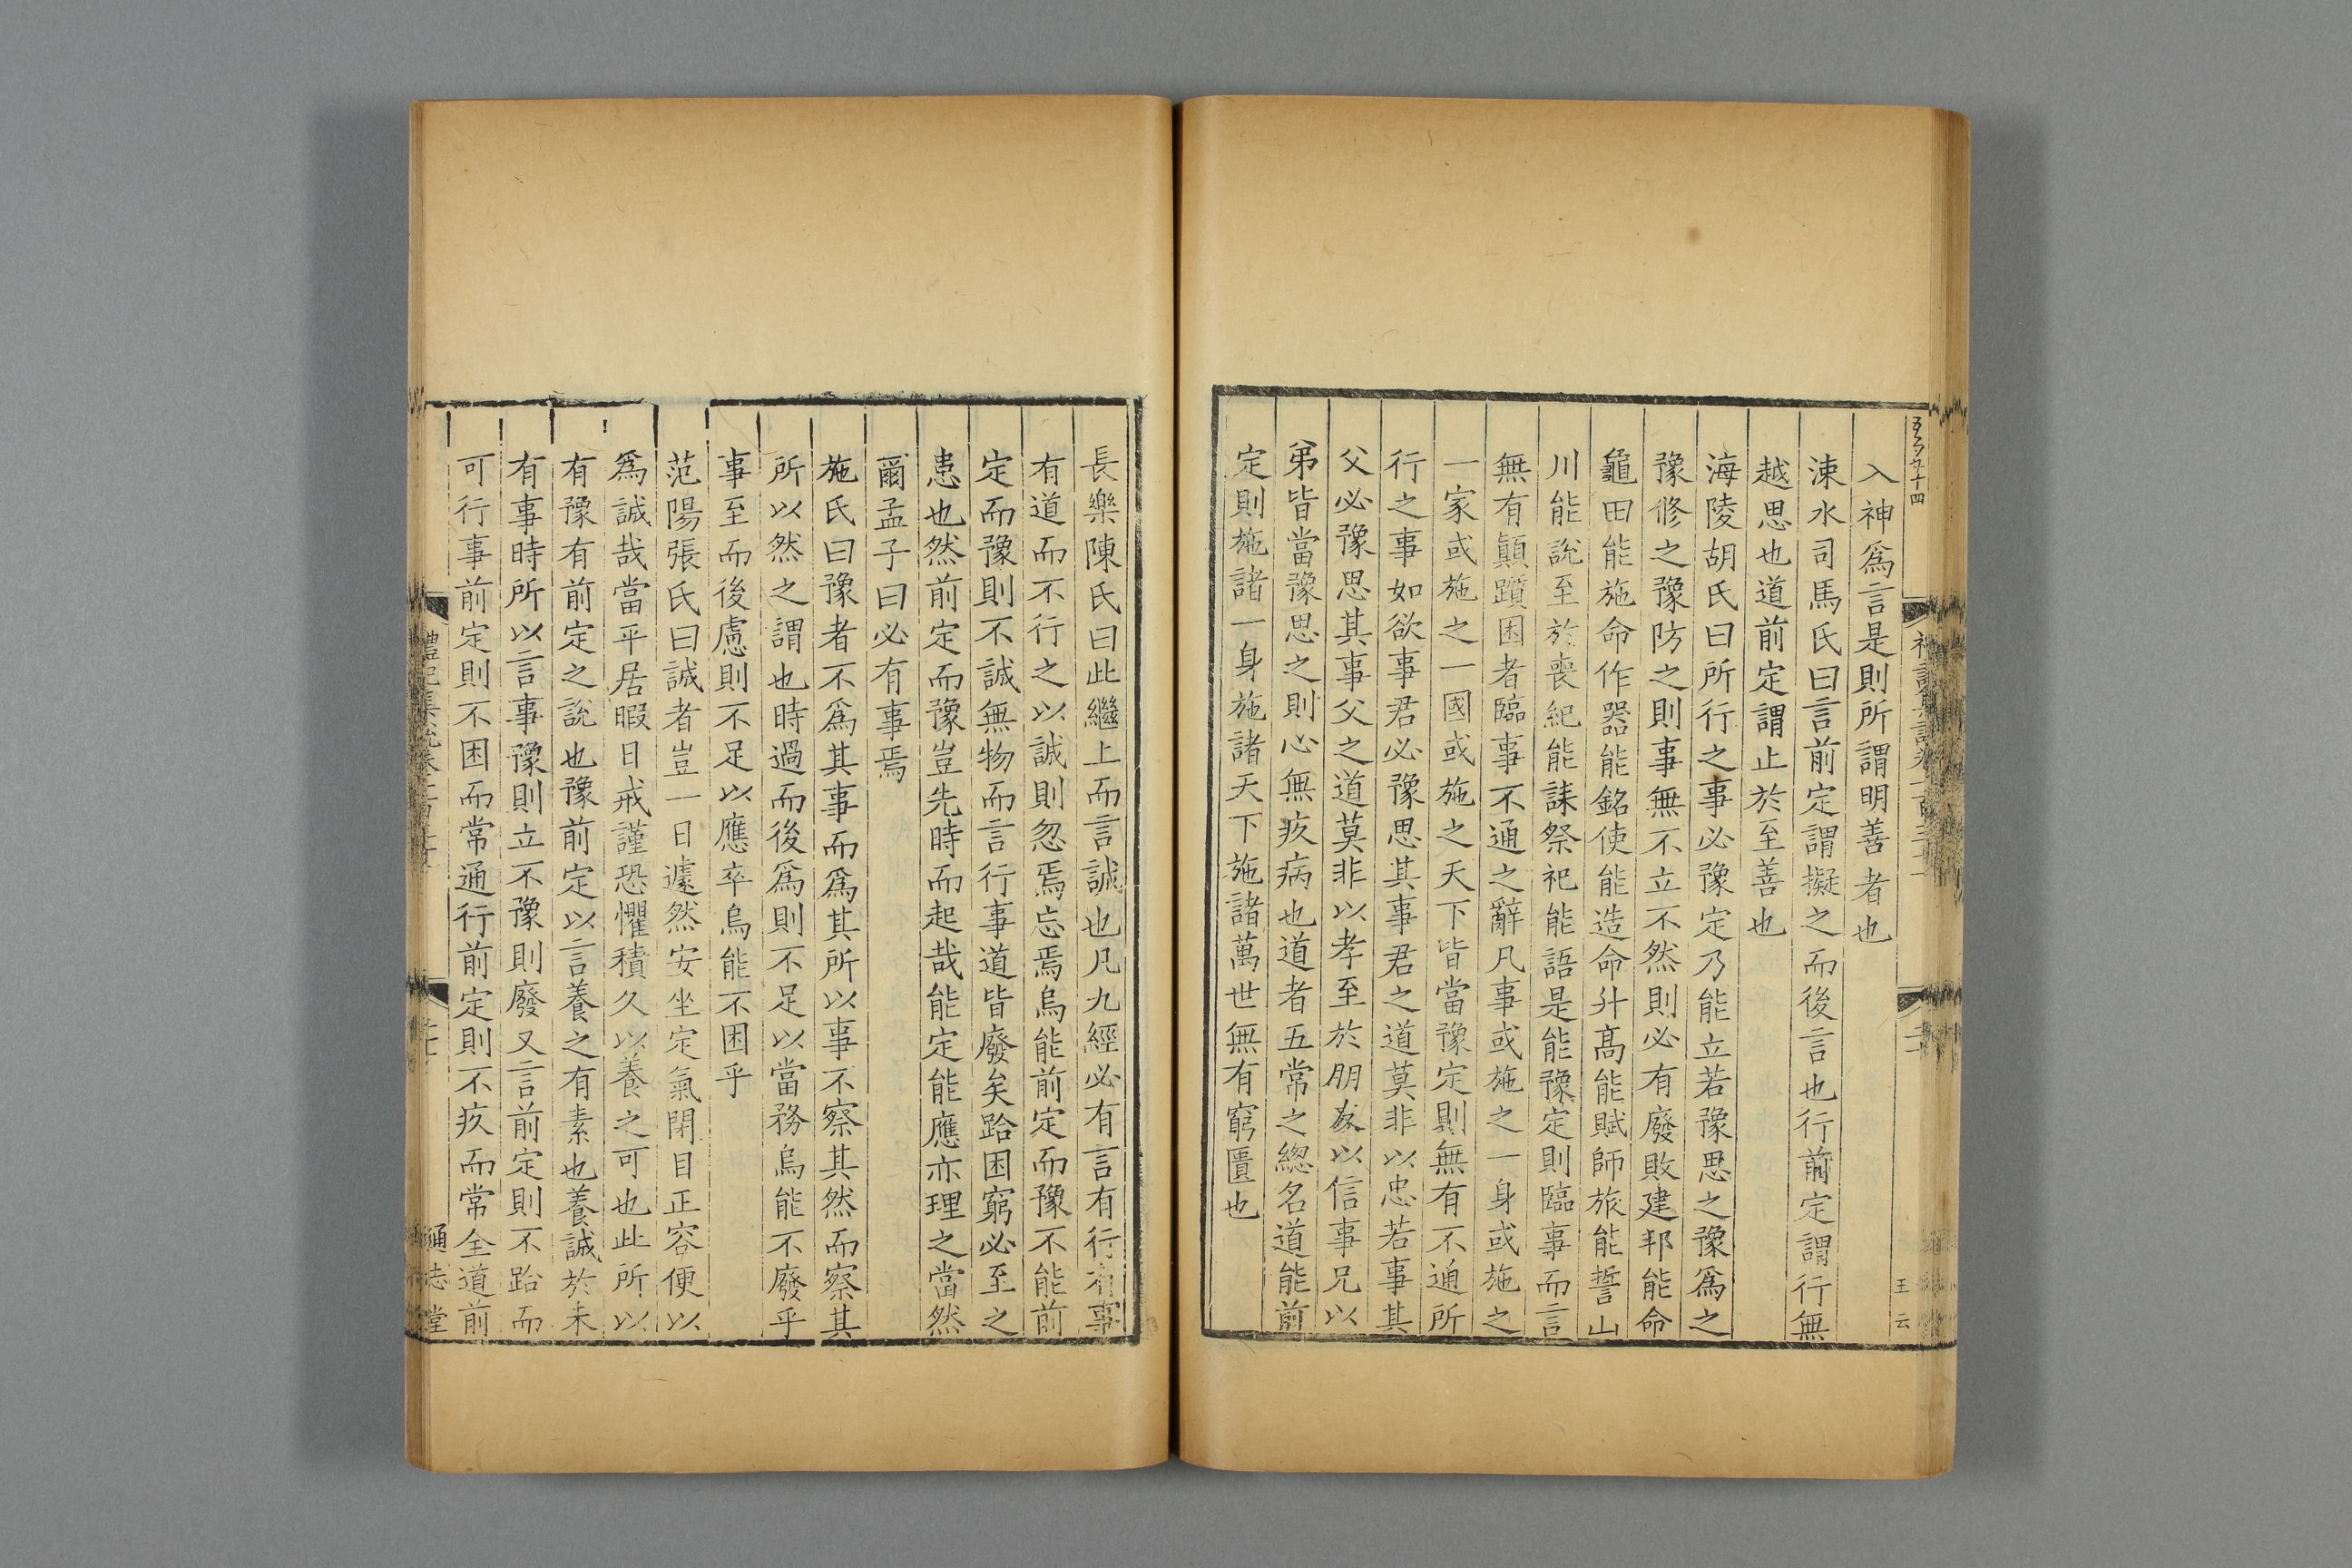 入神爲言是則所謂明善者也
涑水司馬氏曰言前定謂擬之而後言也行前定謂行無
越思也道前定謂止於至善也
海陵胡氏曰所行之事必豫定乃能立若豫思之豫爲之
豫修之豫防之則事無不立不然則必有廢敗建邦能命
龜田能施命作器能銘使能造命升高能賦師旅能誓山
川能說至於喪紀能誄祭祀能語是能豫定則臨事而言
無有顛躓困者臨事不通之辭凡事或施之一身或施之
一家或施之一國或施之天下皆當豫定則無有不通所
行之事如欲事君必豫思其事君之道莫非以忠若事其
父必豫思其事父之道莫非以孝至於朋友以信事兄以
弟皆當豫思之則心無疚病也道者五常之總名道能前
定則施諸一身施諸天下施諸萬世無有窮匱也
王云
長樂陳氏曰此繼上而言誠也凡九經必有言有行有事
有道而不行之以誠則忽焉忘焉烏能前定而豫不能前
定而豫則不誠無物而言行事道皆廢矣跲困窮必至之
患也然前定而豫豈先時而起哉能定能應亦理之當然
爾孟子曰必有事焉
施氏曰豫者不爲其事而爲其所以事不察其然而察其
所以然之謂也時過而後爲則不足以當務烏能不廢乎
事至而後慮則不足以應卒烏能不困乎
范陽張氏曰誠者豈一日遽然安坐定氣閉目正容便以
爲誠哉當平居暇日戒謹恐懼積久以養之可也此所以
有豫有前定之說也豫前定以言養之有素也養誠於未
有事時所以言事豫則立不豫則廢又言前定則不跲而
可行事前定則不困而常通行前定則不疚而常全道前
禮記集說卷
通志堂